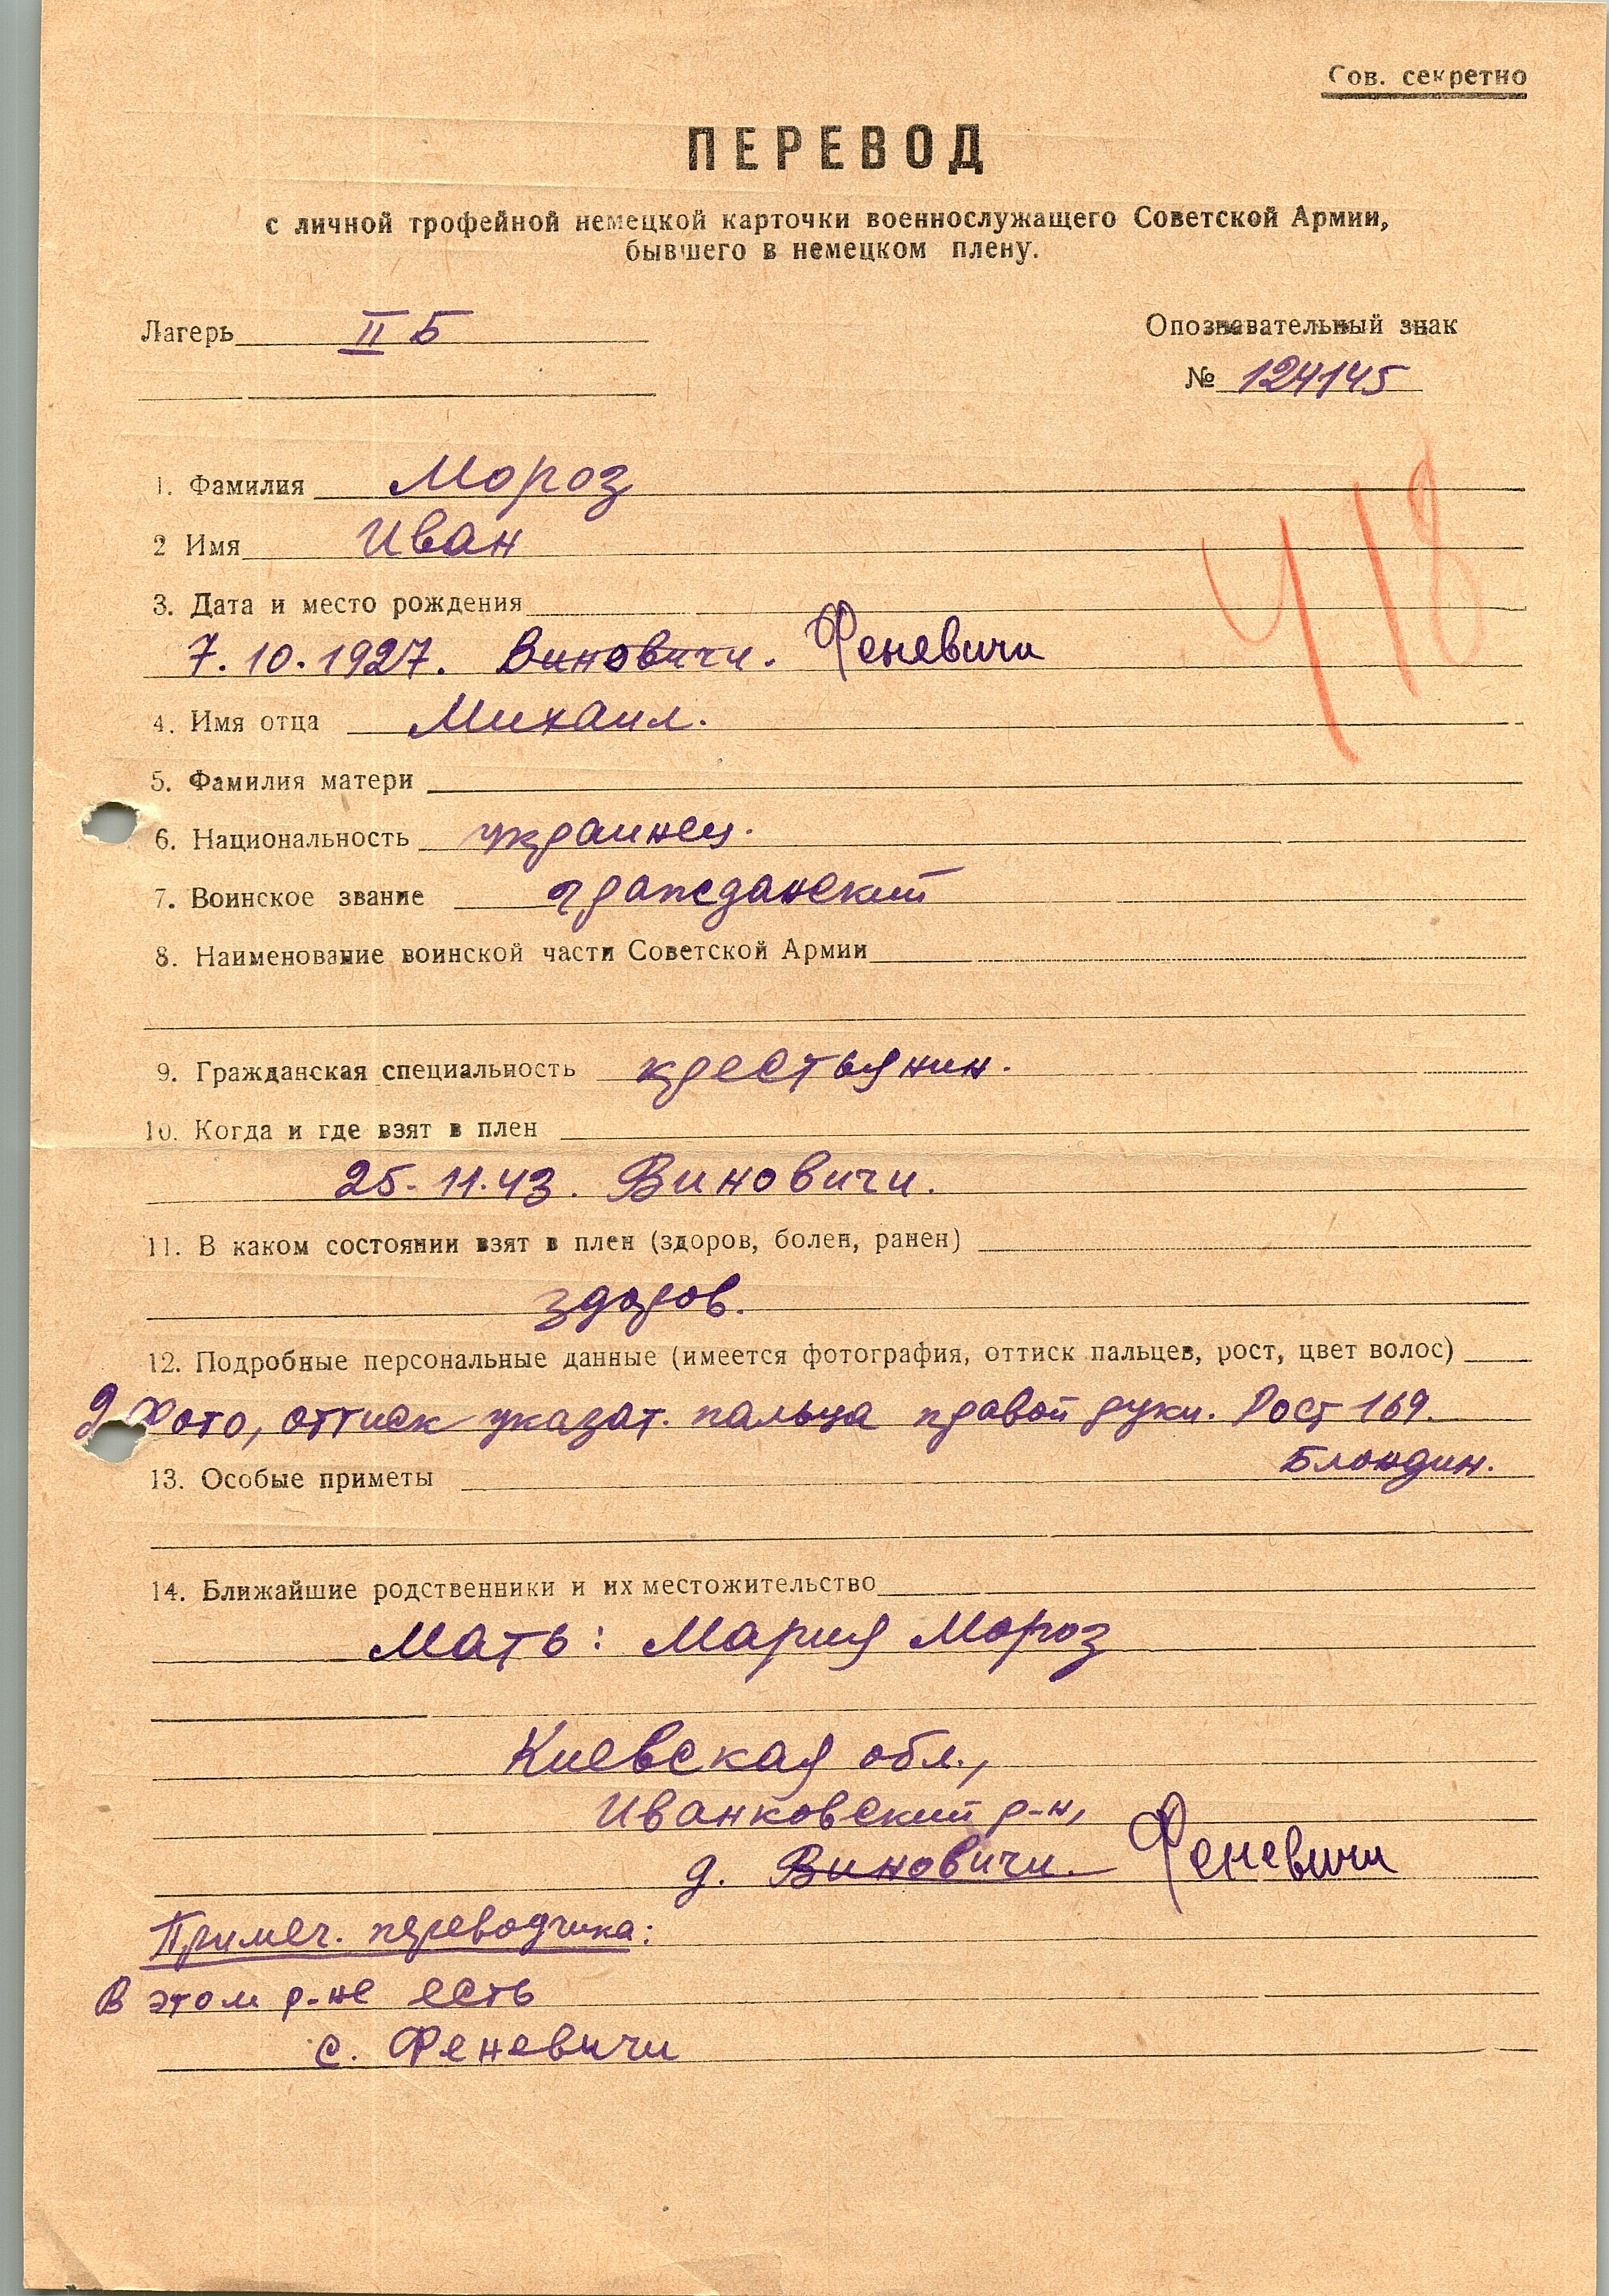 Сов. секретно
ПЕРЕВОД
с личной трофейной немецкой карточки военнослужащего Советской Армии,
бывшего в немецком плену.
Лагерь II Б
Опознавательный знак
№ 124145
1. Фамилия Мороз
2 Имя Иван
418
3. Дата и место рождения
7.10.1927. Виновичи. Феневичи
4. Имя отца Михаил.
5. Фамилия матери
6. Национальность украинец.
7. Воинское звание гражданский
8. Наименование воинской части Советской Армии
9. Гражданская специальность крестьянин.
10. Когда и где взят в плен
25.11.43. Виновичи.
11. В каком состоянии взят в плен (здоров, болен, ранен)
здоров.
12. Подробные персональные данные (имеется фотография, оттиск пальцев, рост, цвет волос)
Фото, оттиск указат. пальца правой руки. Рост 169.
Блондин.
13. Особые приметы
14. Ближайшие родственники и их местожительство
Мать: Мария Мороз
Киевская обл.,
Иванковский р-н,
д. Виновичи. Феневичи
Примеч. переводчика:
В этом р-не есть
с. Феневичи